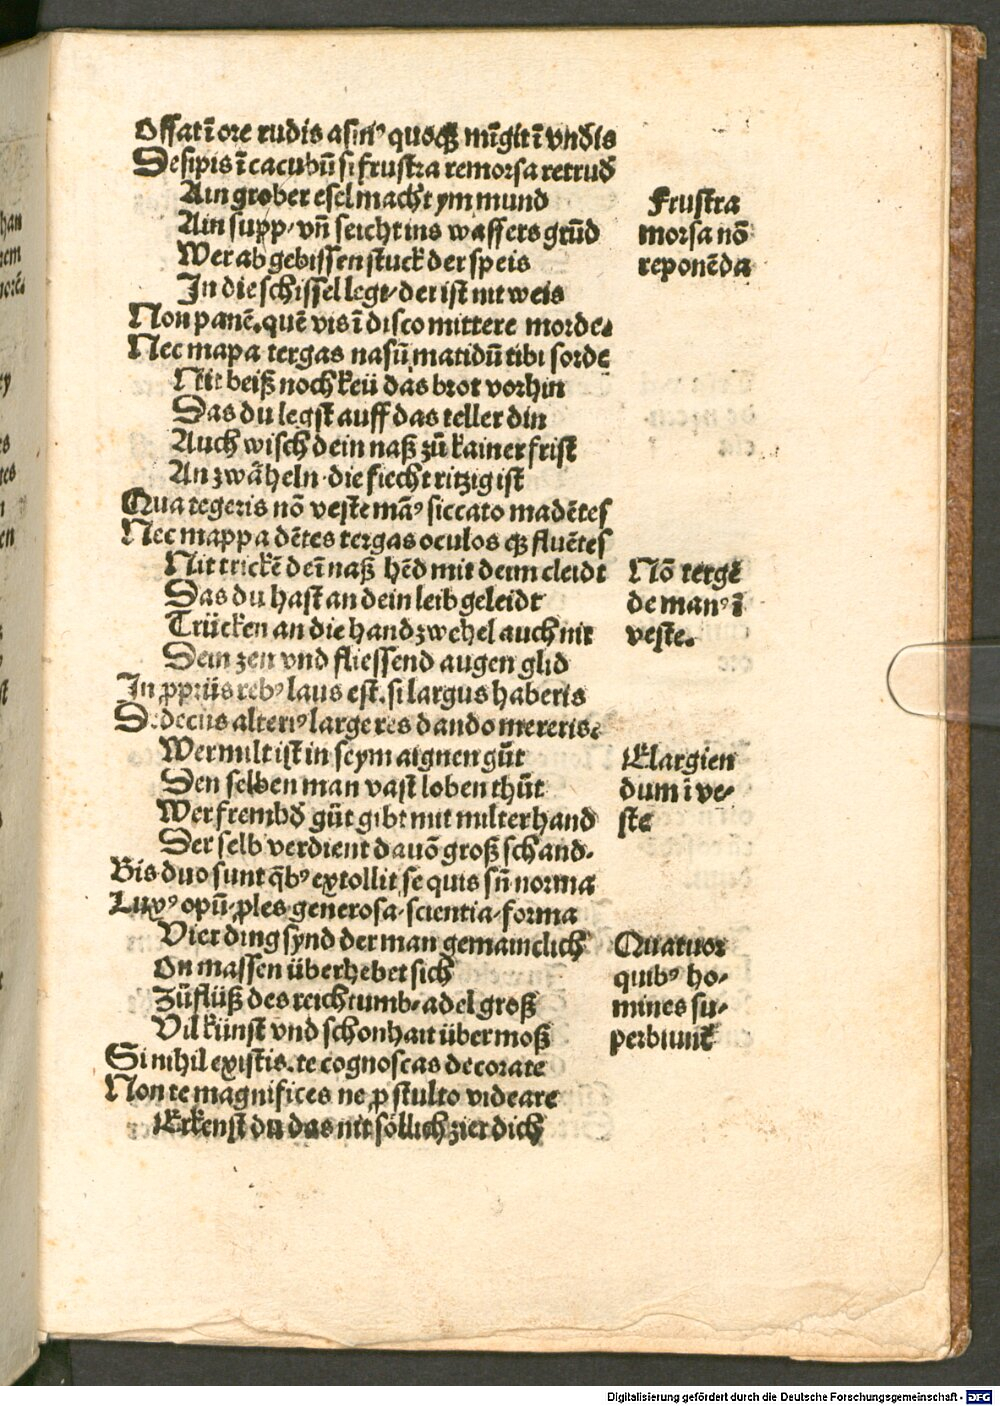 Offat ī ore rudis asin⁹ quoqꝫ mīgit ī vndis
Desipis ī cacubū si frustra remorsa retrud
Ain grober esel macht ym mund
Ain supp/ vñ seicht ins wassers grūd
Wer ab gebissen stuck der speis
In die schissel legt/ der ist nit weis
Frustra
morsa nō
reponēda
Non panē. quē vis ī disco mittere morde.
Nec mapa tergas nasū matidū tibi sorde
Nit beiß noch keü das brot vorhin
Das du legst auff das teller din
Auch wisch dein naß zů kainer frist
An zwäheln die fiecht ritzig ist
Qua tegeris nō veste man⁹ siccato madētes
Nec mappa dētes tergas oculos qꝫ fluētes
Nit trickē deī naß hēd mit deim cleidt
Das du hast an dein leib geleidt
Trücken an die handzwehel auch nit
Dein zen vnd fliessend augen glid
Nō tergē
de man⁹ ī
veste.
In ꝓpriis reb⁹ laus est. si largus haberis
Dedecus alteri⁹ large res dando mereris.
Wer milt ist in seym aignen gůt
Den selben man vast loben thůt
Wer frembd gůt gibt mit milter hand
Der selb verdient dauō groß schand.
Elargien
dum ī ve-
ste
Bis duo sunt qb⁹ extollit se quis sñ norma
Lux⁹ opū. ꝓles generosa. scientia. forma
Vier ding synd der man gemainclich
On massen überhebet sich
Zůflüß des reichtumb. adel groß
Vil künst vnd schonhait übermoß
Quatuor
quib⁹ ho-
mines su-
perbiunt
Si nihil existis. te cognoscas decorate
Non te magnifices ne ꝓ stulto videare
Erkenst du das nit söllich zier dich
Digitalisierung gefördert durch die Deutsche Forschungsgemeinschaft - DFG